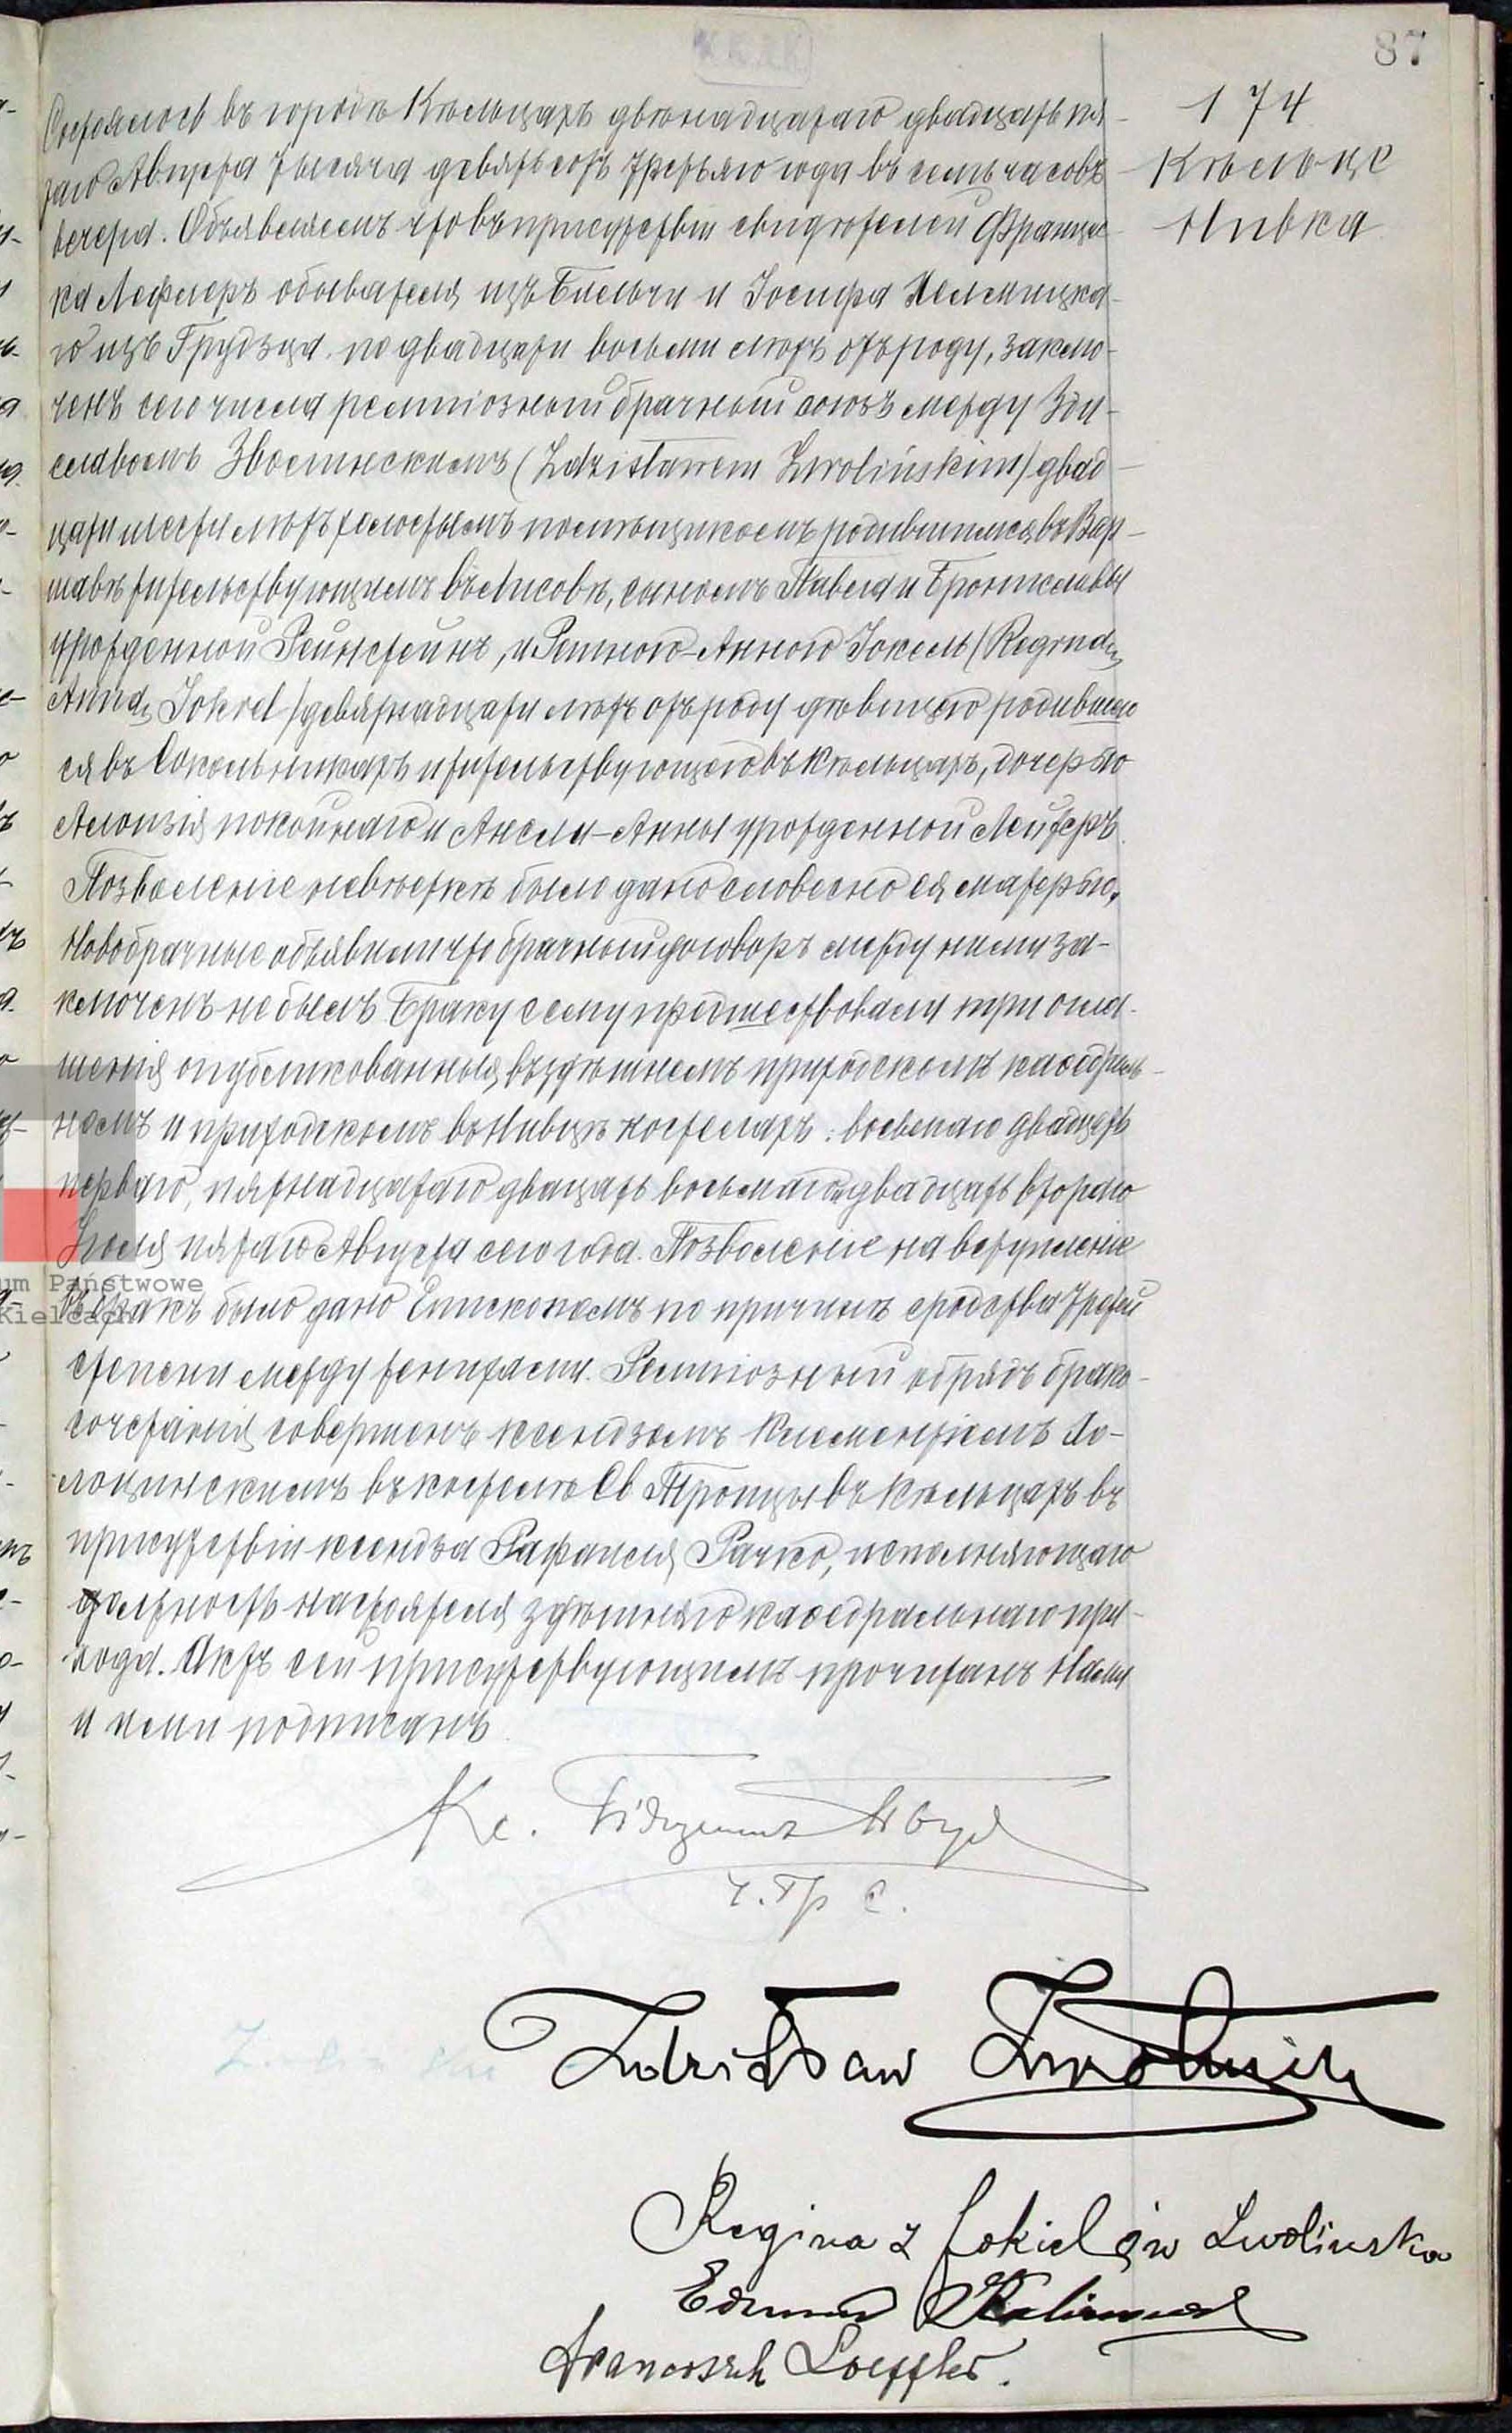 87
174
Кѣльце
Нивка
Состоялось въ городѣ Кѣльцахъ двѣнадцатаго двадцать пя-
таго Августа тысяча девятьсотъ третьяго года въ семь часовъ
вечера. Объявляемъ что въ присутствіи свидѣтелей Францис-
ка Лефлеръ обывателя изъ Бильчи и Іосифа
го изъ по двадцати восьми лѣтъ отъ роду, заклю-
ченъ сего числа религіозный брачный союзъ между Зди-
славомъ Зволинскимъ (Zdzisławem Zwolińskim) двад-
цати шести лѣтъ холостымъ помѣщикомъ родившимся въ Вар-
шавѣ жительствующимъ въ Лисовѣ, сыномъ Павела и Брониславы
урожденной Рейнстейнъ, и Региною-Анною Іокель (Reginą
Anną Jokiel) девятнадцати лѣтъ отъ роду дѣвицею родившею
ся въ Сокольникахъ и жительствующею въ Кѣльцахъ, дочерью
Алоизія покойнаго и Анели-Анны урожденной
Позволеніе невѣстѣ было дано словесно ея матерью.
Новобрачные объявили что брачный договоръ между ними за-
ключенъ не былъ Браку сему предшествовали три огла-
шенія опубликованныя въ здѣшнемъ приходскомъ каѳедраль-
номъ и приходскомъ въ Нивцѣ костелахъ: восьмаго двадцать
перваго, пятнадцатаго двацать восьмаго и двадцать втораго
Іюля пятаго Августа сего года. Позволеніе на вступленіе
въ бракъ было дано Епископомъ по причинѣ сродства третей
степени между женихами. Религіозный обрядъ брако-
сочетанія совершенъ ксендзомъ Клементіемъ
въ костелѣ Св Троицы въ Кѣльцахъ въ
присутствіи ксендза Рафаила Рачко, исполняющаго
должность настоятеля здѣшняго каѳедральнаго при-
хода. Актъ сей присутствующимъ прочитанъ Нами
и ними подписанъ
Кс.
ч. Гр С.
Zdzisław Zwoliński
Regina z Jokielów Zwolińska
Edmund
Franciszek Loeffler.
um Państwowe
Kielcach